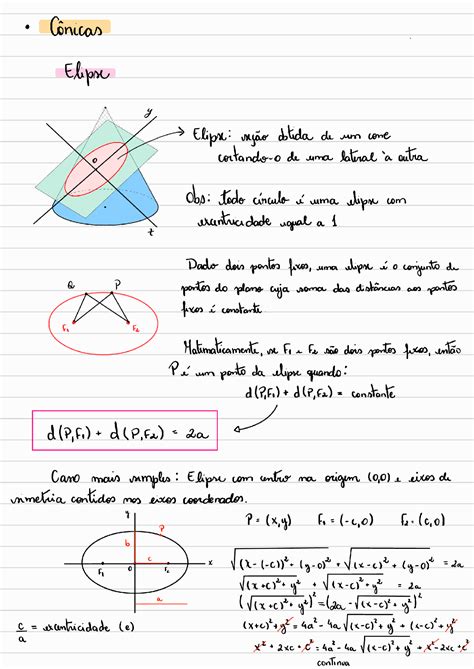 • Cônicas
Elipse
y
o
t
Elipse: seção obtida de um cone
cortando-o de uma lateral à outra
Obs: Todo círculo é uma elipse com
excentricidade igual a 1
Dado dois pontos fixos, uma elipse é o conjunto de
pontos do plano cuja soma das distâncias aos pontos
fixos é constante
Q P
F₁ F₂
Matematicamente, se F₁ e F₂ são dois pontos fixos, então
P é um ponto da elipse quando:
d(P,F₁) + d(P,F₂) = constante
d(P,F₁) + d(P,F₂) = 2a
Caso mais simples: Elipse com centro na origem (0,0) e eixos de
simetria contidos nos eixos coordenados.
y
P
b
c
F₁ 0 F₂ x
a
P = (x,y) F₁ = (-c,0) F₂ = (c,0)
√((x-(-c))² + (y-0)²) + √((x-c)² + (y-0)²) = 2a
√((x+c)² + y²) + √((x-c)² + y²) = 2a
(√((x+c)² + y²))² = (2a - √((x-c)² + y²))²
(x+c)² + y² = 4a² - 4a √((x-c)² + y²) + (x-c)² + y²
x² + 2xc + c² = 4a² - 4a √((x-c)² + y²) + x² - 2xc + c²
c/a = excentricidade (e)
continua